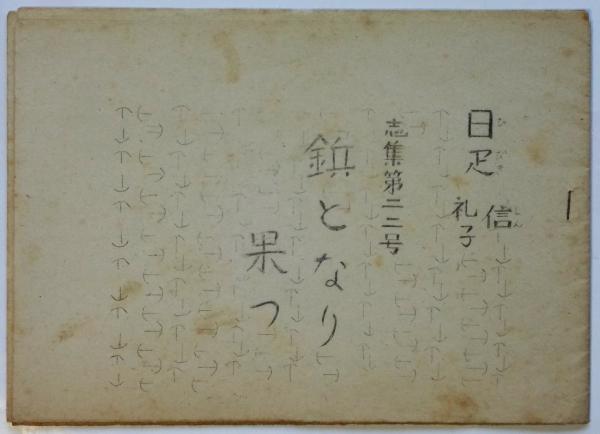 日疋 信
礼子
志集第二三号
鋲となり
果つ